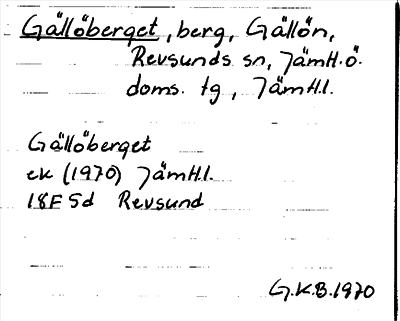 Gällöberget, berg, Gällön,
Revsunds sn, Jämtl. ö.
doms. tg, Jämtl.
Gällöberget
ek (1970) Jämtl.
18F 5d Revsund
G.K.B. 1970